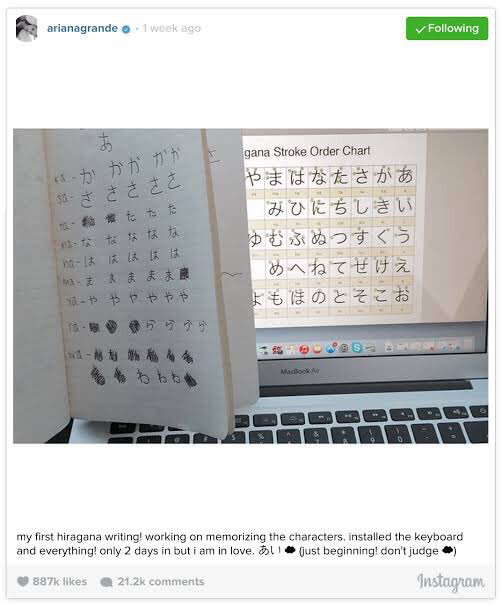 arianagrande · 1 week ago
Following
あ
ka - か か か か か
sa - さ さ さ さ さ
ta - た た た
na - な な な な な
ha - は は は は は
ma - ま ま ま ま
ya - や や や や や や
ra - ら ら ら ら
wa -
わ わ わ
gana Stroke Order Chart
や ま は な た さ か あ
み ひ に ち し き い
ゆ む ふ ぬ つ す く う
め へ ね て せ け え
よ も ほ の と そ こ お
MacBook Air
my first hiragana writing! working on memorizing the characters. installed the keyboard
and everything! only 2 days in but i am in love. あい (just beginning! don't judge )
887k likes 21.2k comments Instagram